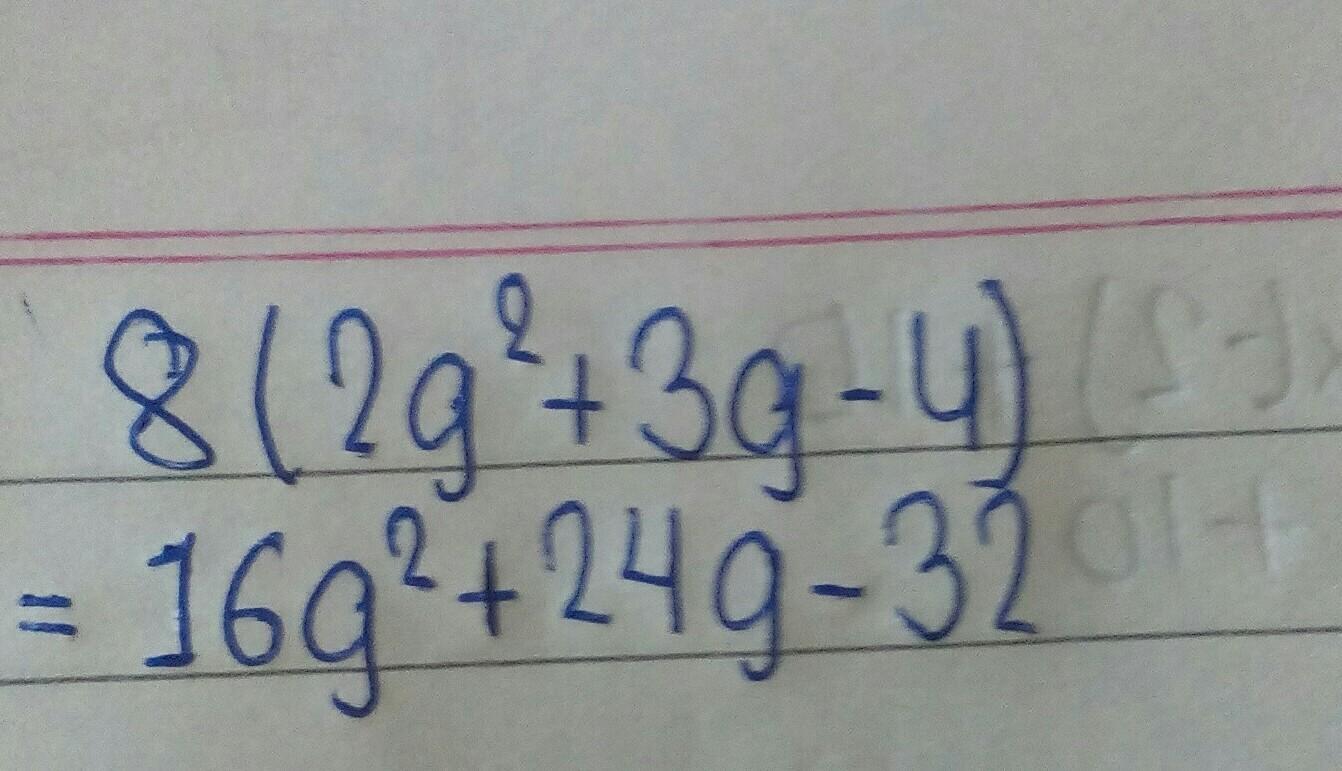 8(2g²+3g-4)
=16g²+24g-32